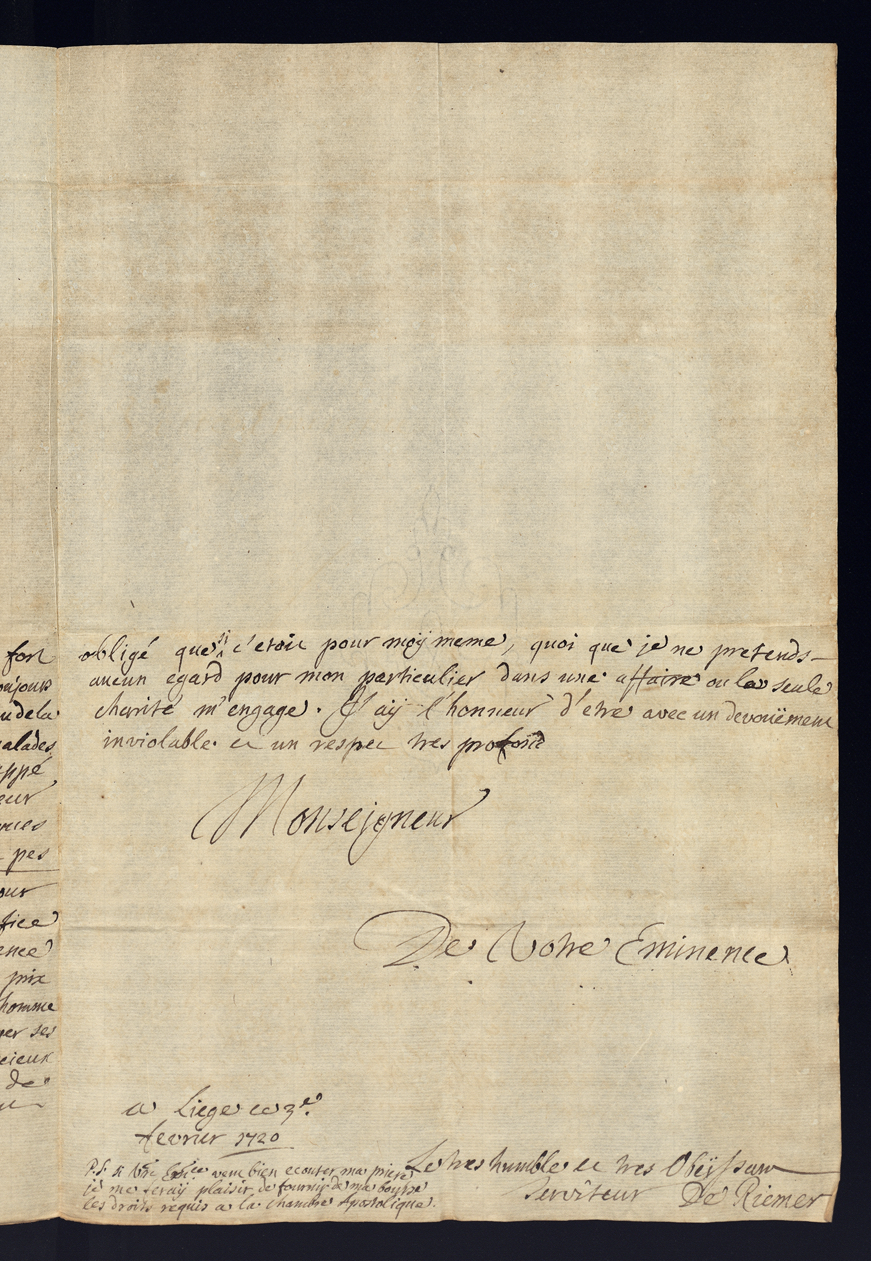 fort
oujours
u de la
alades
appé
eur
nces
pes
our
fice
ence
prix
homme
ner ses
cieux
de
obligé que si c'etoit pour moÿ meme, quoi que je ne pretends
aucun egard pour mon particulier dans une affaire ou la seule
charité m'engage. J'aÿ l'honneur d'etre avec un devouëment
inviolable et un respec tres profond
Monseigneur
De Votre Eminence
a Liege ce 3e.
fevrier 1720
P.S. si Vre Ence veut bien ecouter ma priere
je me feraÿ plaisir de fournir de ma bourse
les droits requis a la chambre Apostolique.
Le tres humble et tres Obeÿssant
serviteur De Riemer